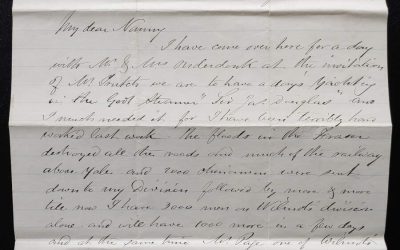 My dear Nanny
I have come over here for a day
with Mr & Mrs Onderdonk at the invitation
of Mr. we are to have a day's Yachting
in the Govt Steamer "Sir Jas Douglas" and
I much needed it for I have been terribly hard
worked last week the floods in the Fraser
destroyed all the roads and much of the railway
above Yale and 2000 chinamen were sent
down to my Division followed by more & more
till now I have 3000 men in division
alone and will have 1000 more in a few days
and at the same time Mr. one of